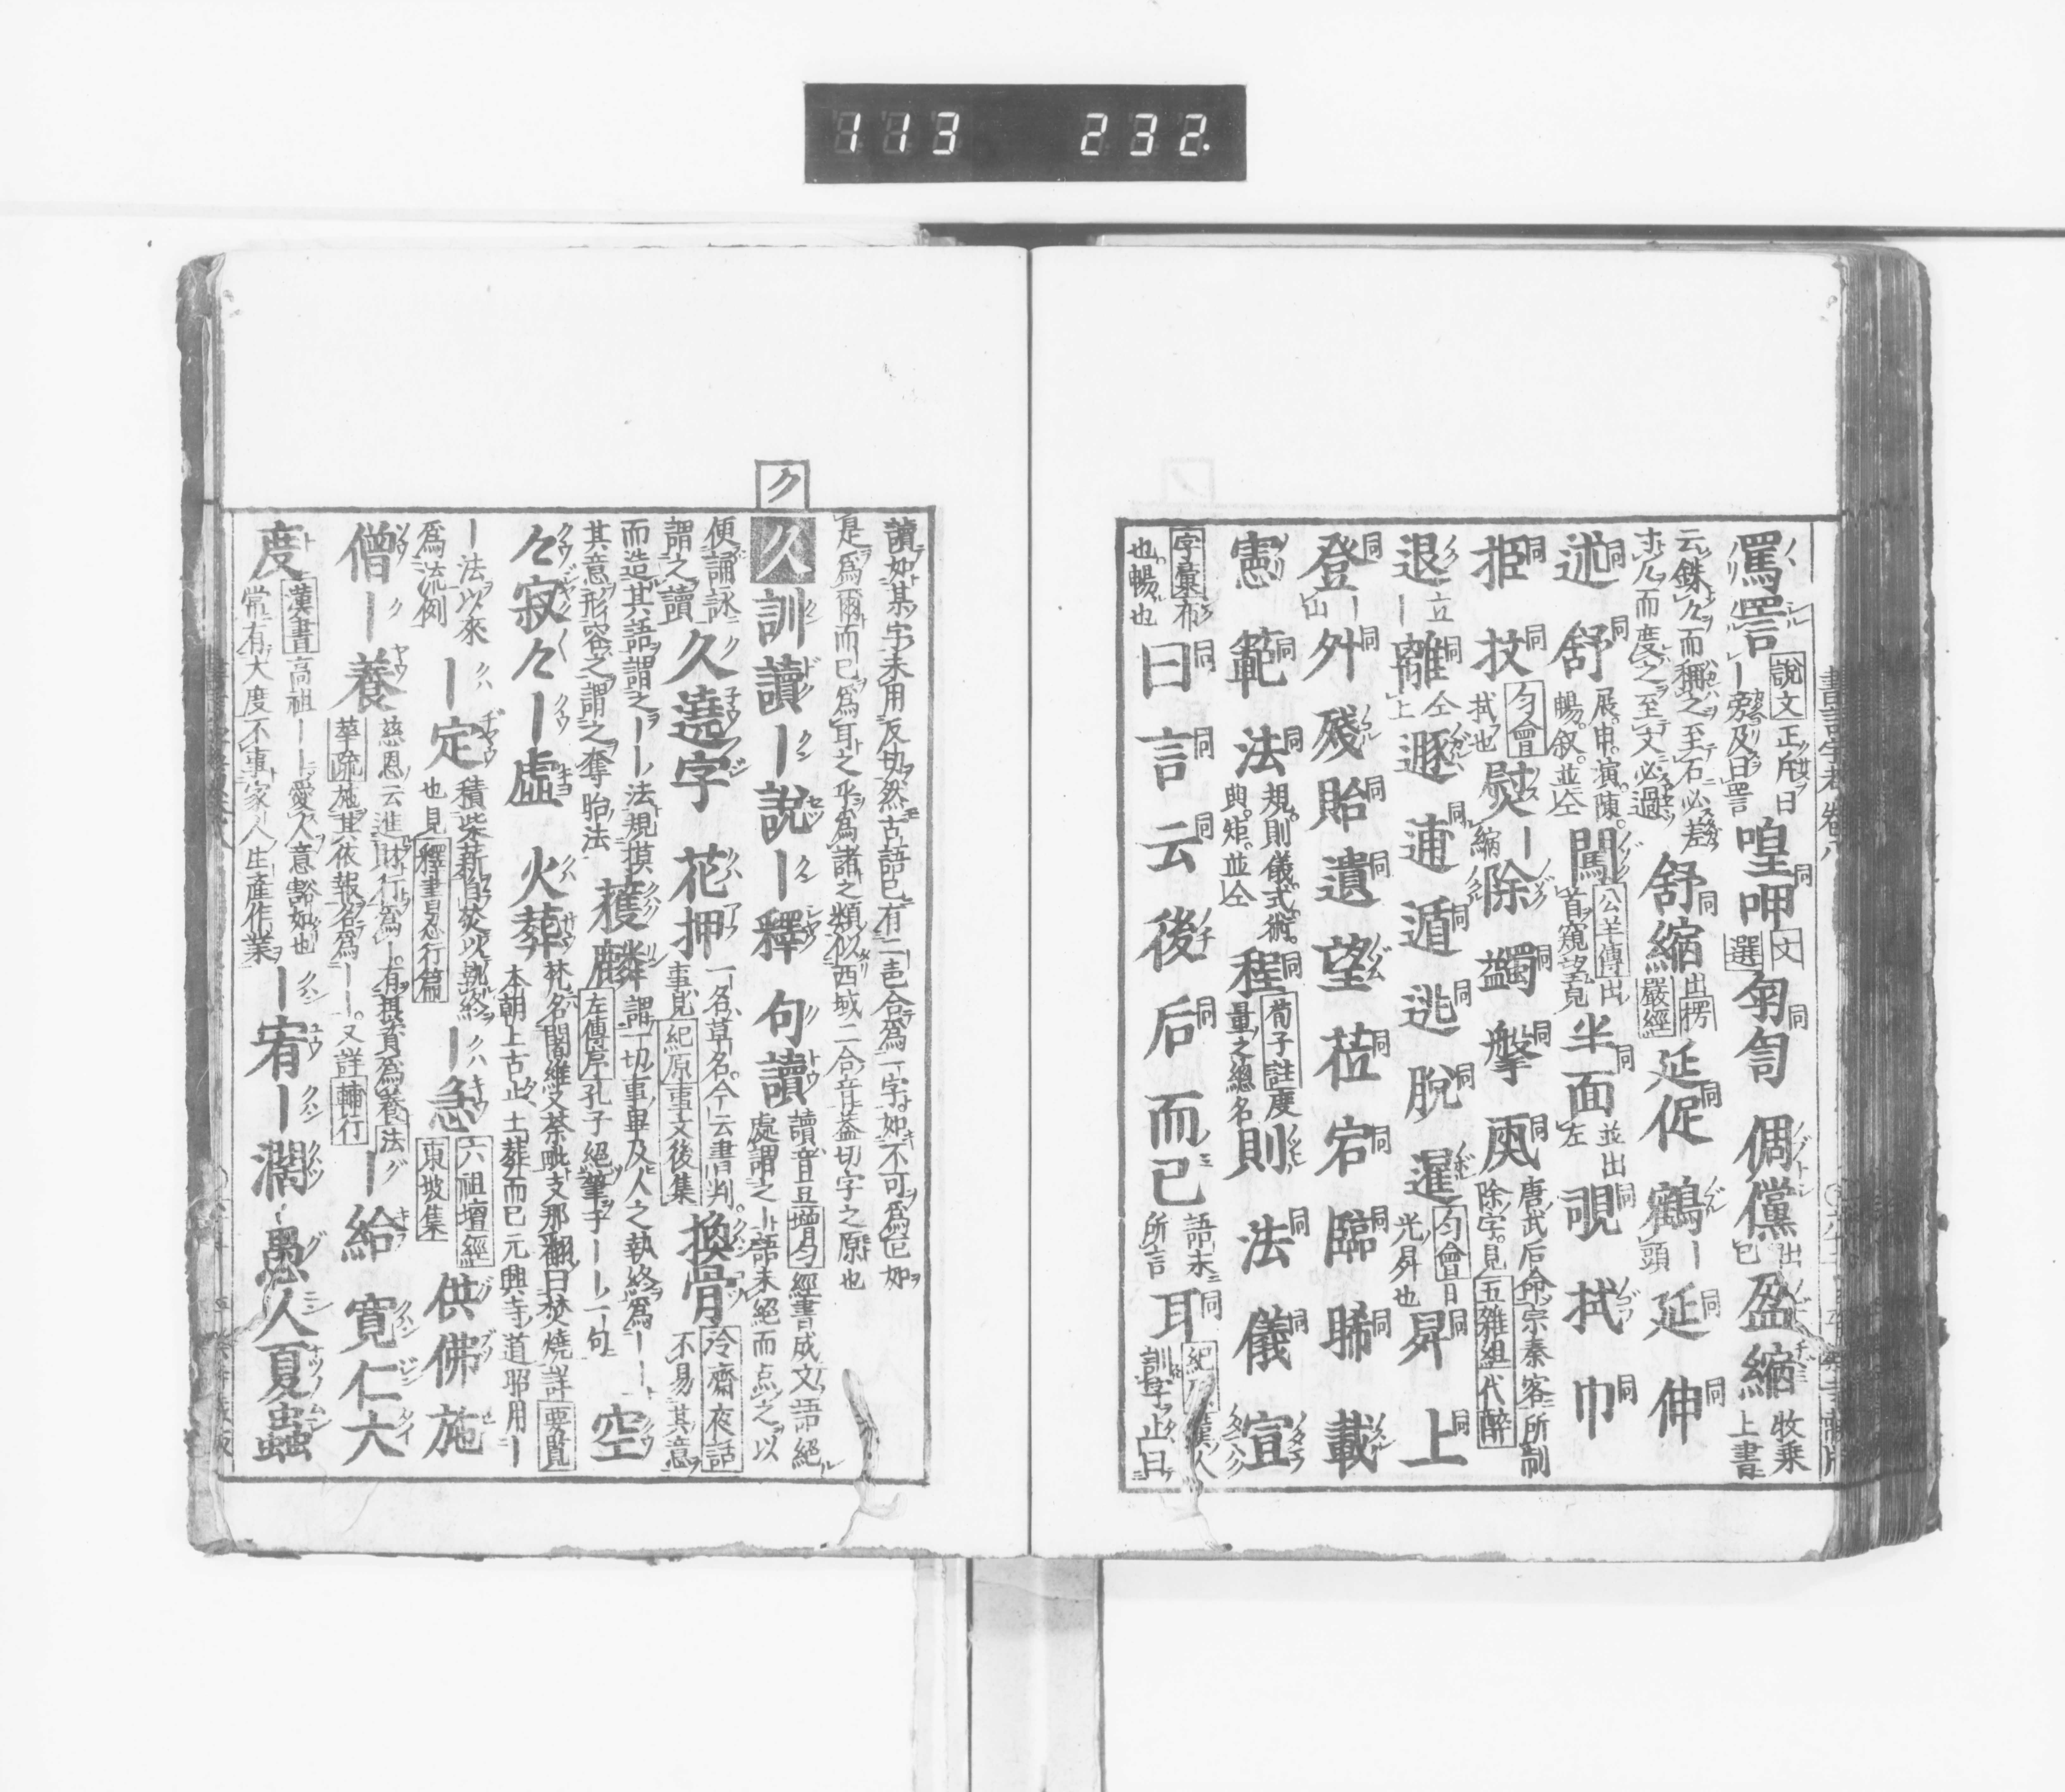 113 232.
罵詈 説文正斥曰ー旁及曰詈 喤呷 同 文選 匌匒 同 倜儻 出 盈縮 牧乗上書
云銖々而稱之至石必差寸々而度之至丈必過 舒縮 同 出楞嚴經 延促 同 鶴ー頭 延 同 伸 同
述 同 舒 同 展申演陳暢叙並仝 闖 公羊傳出首窺望皃 半面 同 並出左 覗 同 拭 巾 同
拒 同 技 同 匀會拭也 熨ー縮 除 蠲 同 擎 同 唐武后命宗秦客所制除字見五雜組代醉
退 立ー 離 同 仝上 遯 逋 同 遁 同 逃 同 脫 同 暹 匀會日光昇也 昇 同 上 同
登 同 ー山 外 同 殘 貽 同 遺 同 望 莅 同 宕 同 臨 同 睎 同 載
憲 範 同 法 同 規則儀式術典矩並仝 程 同 荀子註度量之總名 則 法 同 儀 同 宣
字彙布也暢也 曰 同 言 同 云 同 後 后 同 而已 語末所言 耳 同 漢人訓字止曰
讀如某字未用反切然古語已有二聲合爲一字如不可爲叵如
是爲爾而已爲耳之乎爲諸之類似西域二合音蓋切字之原也
ク
久 訓讀 ー說 ー釋 句讀 讀音豆增匀經書成文語絕處謂之ー語未絕而点之以
便誦詠謂之讀 久遶字 花押 一名草名今云書判事見紀原事文後集 換骨 冷齋夜話不易其意
而造其語謂之ーー法規摸其意形容之謂之奪胎法 獲麟 謂一切事畢及人之執終爲ーー左傳序孔子絕筆于ーー一句 空
々寂々 ー虛 火葬 梵名闍維又荼毗支那翻曰焚燒詳要覧本朝上古止土葬而已元興寺道昭用ー
ー法以來爲流例 ー定 積柴薪自焚以執終也見釋書忍行篇 ー急 六祖壇經東坡集 供佛施
僧 ー養 慈恩云進財行爲ー有摂資爲養法華疏施其依報名爲ーー又詳輔行 ー給 寬仁大
度 漢書高祖ーー愛人意豁如也常有大度不事家人生產作業 ー宥 ー濶 愚人夏蟲